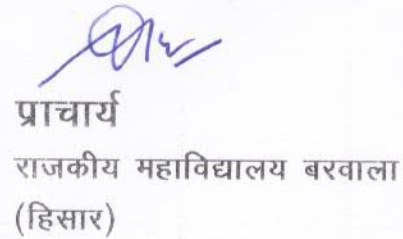 प्राचार्य
राजकीय महाविद्यालय बरवाला
(हिसार)